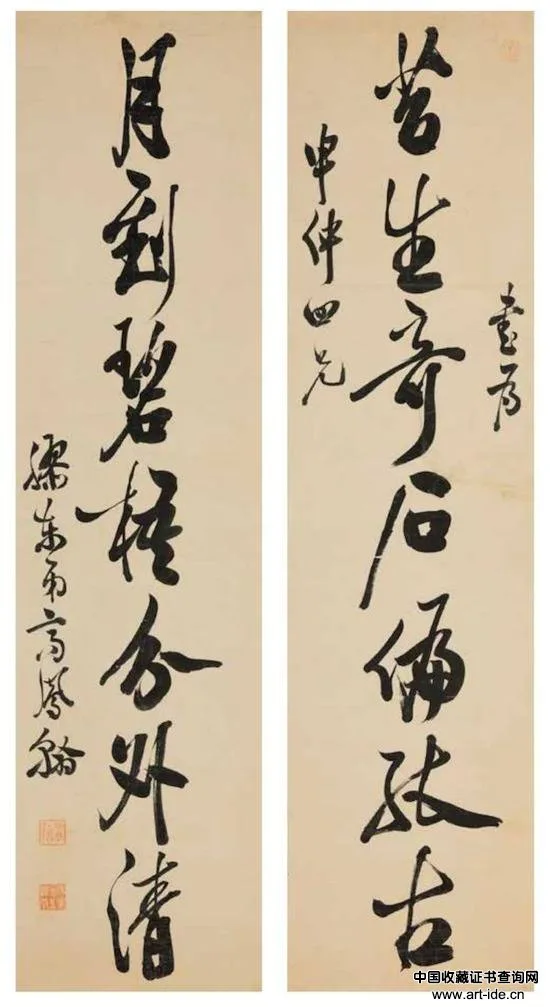 書為
苔生奇石偏古
申仲四兄
月到碧梧分外清
膠東弟高鳳翰
中国收藏证书查询网
www.art-ide.cn